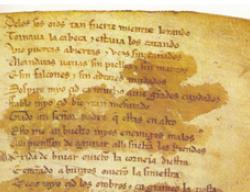 Delos sos oios tan fuerte mientre lorando
Tornaua la cabeça estaua los catando
Vio puertas abiertas vços sin cañados
Alcandaras uazias sin pielles sin mantos
E sin falcones sin adtores mudados
Sospiro myo çid mucho auie grandes cuydados
ffablo myo çid bien tan mesurado
Grado señor padre estas en alto
Esto me an buelto myos enemigos malos
pienssan de aguijar alli sueltan las riendas
exida de biuar la corneia diestra
entrando a burgos la siniestra
myo çid los ombros engrameo la tiesta